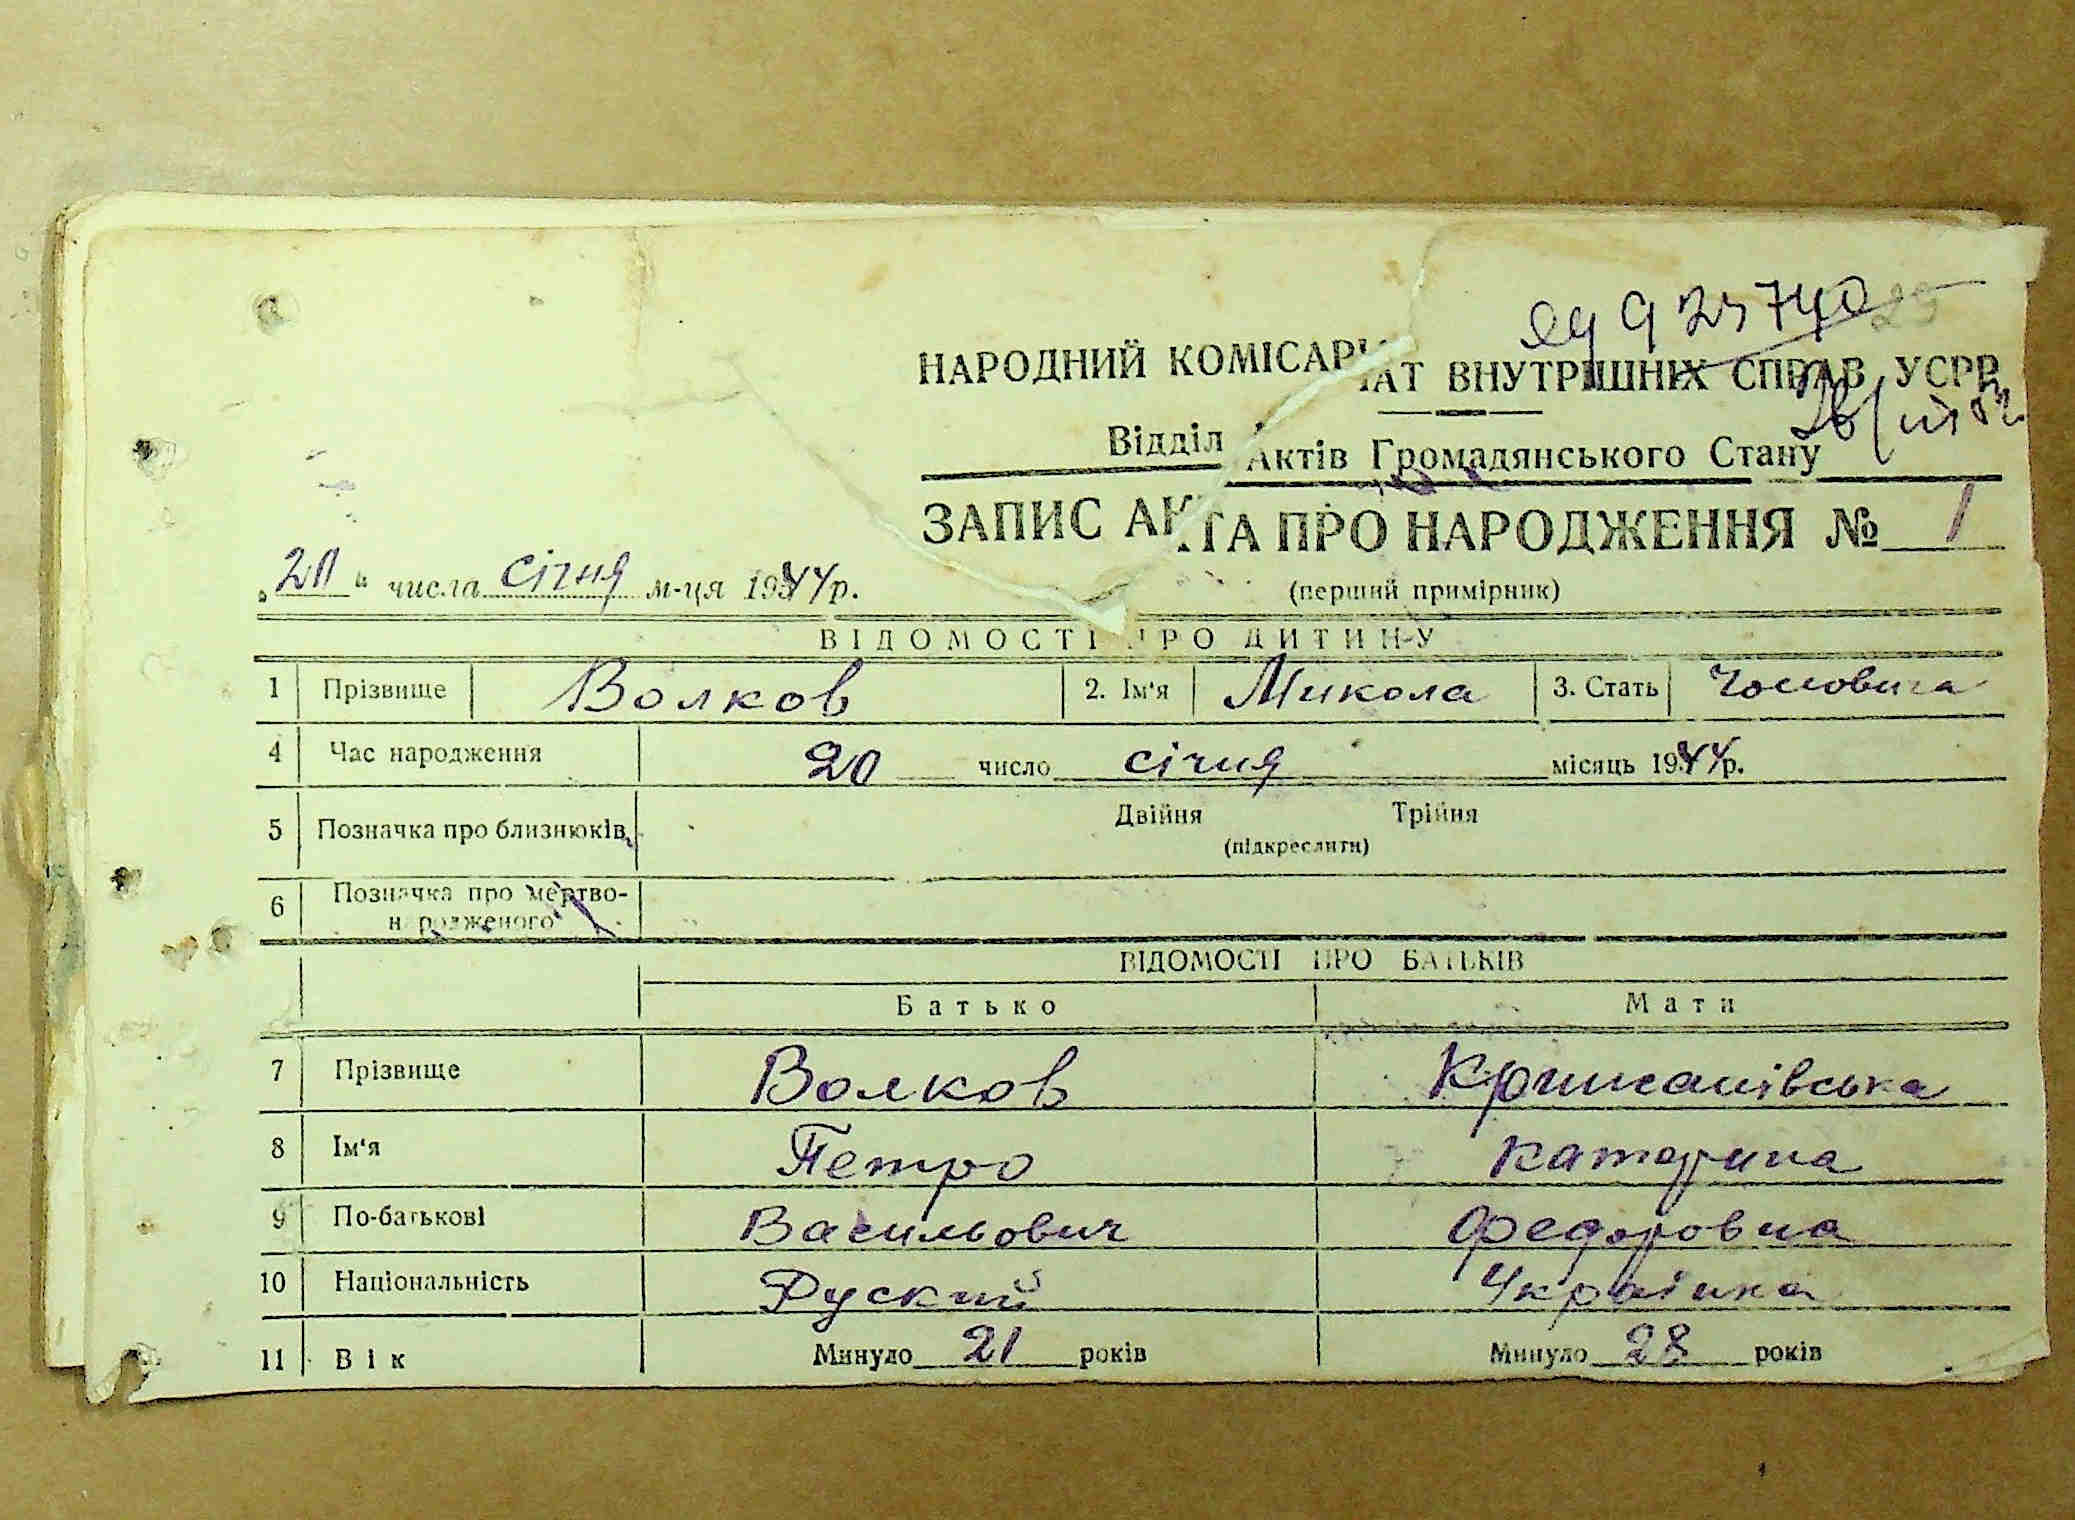 НАРОДНИЙ КОМІСАРІАТ ВНУТРІШНІХ СПРАВ УСРР
Відділ Актів Громадянського Стану
ЗАПИС АКТА ПРО НАРОДЖЕННЯ № 1
„20“ числа січня м-ця 1944р.
(перший примірник)
ВІДОМОСТІ ПРО ДИТИНУ
1 Прізвище Волков 2. Ім'я Микола 3. Стать Чоловича
4 Час народження 20 число січня місяць 1944р.
5 Позначка про близнюків Двійня Трійня
(підкреслити)
6 Позначка про мертво-
народженого
ВІДОМОСТІ ПРО БАТЬКІВ
Батько Мати
7 Прізвище Волков
8 Ім'я Петро Катерина
9 По-батькові Васильович Федоровна
10 Національність Руский Українка
11 Вік Минуло 21 років Минуло 28 років